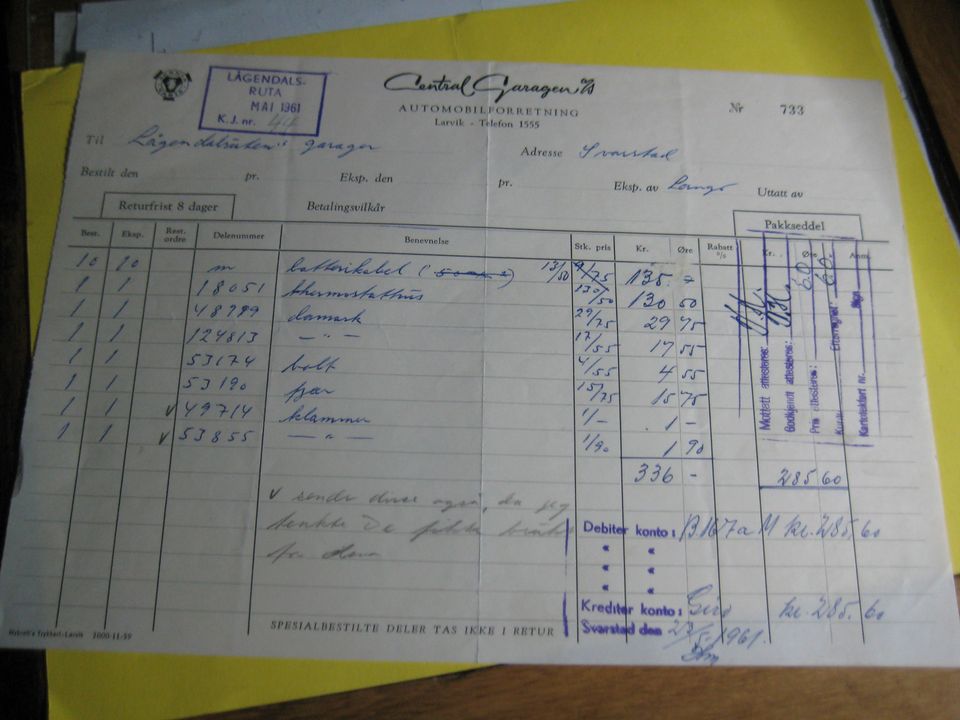 LÅGENDALS-
RUTA
MAI 1961
K. J. nr. 44
Central Garagen A/S
AUTOMOBILFORRETNING
Larvik - Telefon 1555
Nr 733
Til Lågendalsrutens garager
Adresse Svarstad
Bestilt den pr. Eksp. den pr. Eksp. av Uttatt av
Returfrist 8 dager Betalingsvilkår Pakkseddel
Best. Eksp. Rest. ordre Delenummer Benevnelse Stk. pris Kr. Øre Rabatt % Kr. Øre Anm.
10 10 m batterikabel ( ) 13/50 135 -
1 1 18051 thermostathus 130/50 130 50
1 1 48799 29/75 29 75
1 1 124813 — " — 17/55 17 55
1 1 53174 bolt 4/55 4 55
1 1 53190 fjær 15/75 15 75
1 1 v 49714 klammer 1/- 1 -
1 1 v 53855 — " — 1/90 1 90
336 - 285 60
Mottatt attesteres:
Godkjent attesteres:
Pris attesteres: 60
Konto Ettermgitt 60
Kartotekført nr. Bga
v sender disse også, da jeg
tenkte De
for
Debiter konto: B 167a M kr. 285,60
" "
" "
" "
" "
Krediter konto: Giro kr. 285,60
Svarstad den 27/5 1961
SPESIALBESTILTE DELER TAS IKKE I RETUR
Trykkeri-Larvik 1000-11-59